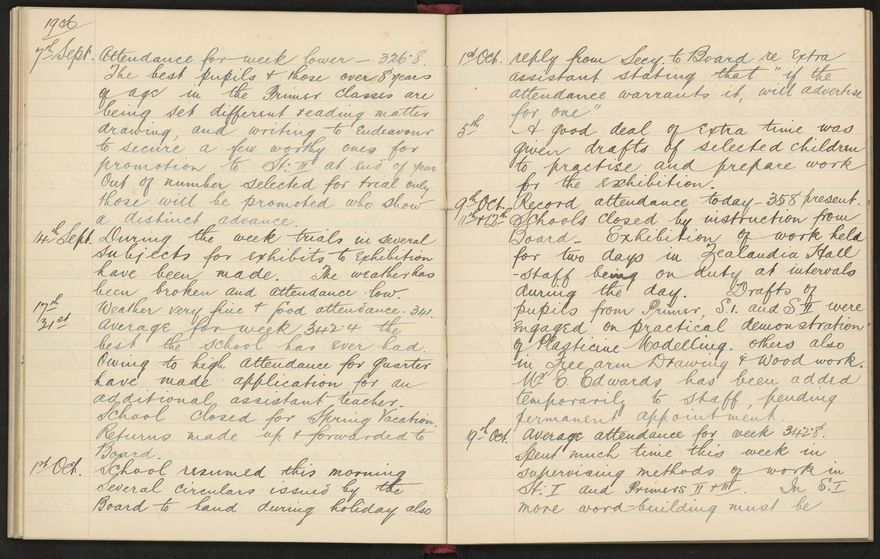 1906
7th Sept. Attendance for week lower - 326.8.
The best pupils & those over 8 years
of age in the Primer Classes are
being set different reading matter
drawing, and writing to endeavour
to secure a few worthy ones for
promotion to St: II at end of year
Out of number selected for trial only
those will be promoted who show
a distinct advance.
14th Sept. During the week trials in several
subjects for exhibits to Exhibition
have been made. The weather has
been broken and attendance low.
17th Weather very fine & good attendance. 341.
31st Average for week 342.4 the
best the school has ever had.
Owing to high attendance for quarter
have made application for an
additional assistant teacher.
School closed for Spring Vacation.
Returns made up & forwarded to
Board.
1st Oct. School resumed this morning
several circulars issued by the
Board to hand during holiday also
1st Oct. reply from Secy. to Board re extra
assistant stating that "if the
attendance warrants it, will advertise
for one"
5th A good deal of extra time was
given drafts of selected children
to practise and prepare work
for the Exhibition.
9th Oct. Record attendance today - 358 present.
11th & 12th Schools closed by instruction from
Board - Exhibition of work held
for two days in Zealandia Hall
- staff being on duty at intervals
during the day. Drafts of
pupils from Primer, S.I. and S II were
engaged on practical demonstration
of Plasticine Modelling. others also
in Free arm Drawing & Wood work.
E. Edwards has been added
temporarily to staff, pending
permanent appointment.
19th Oct. Average attendance for week 342.8.
Spent much time this week in
supervising methods of work in
St: I and Primers II & III. In S.I
more word-building must be